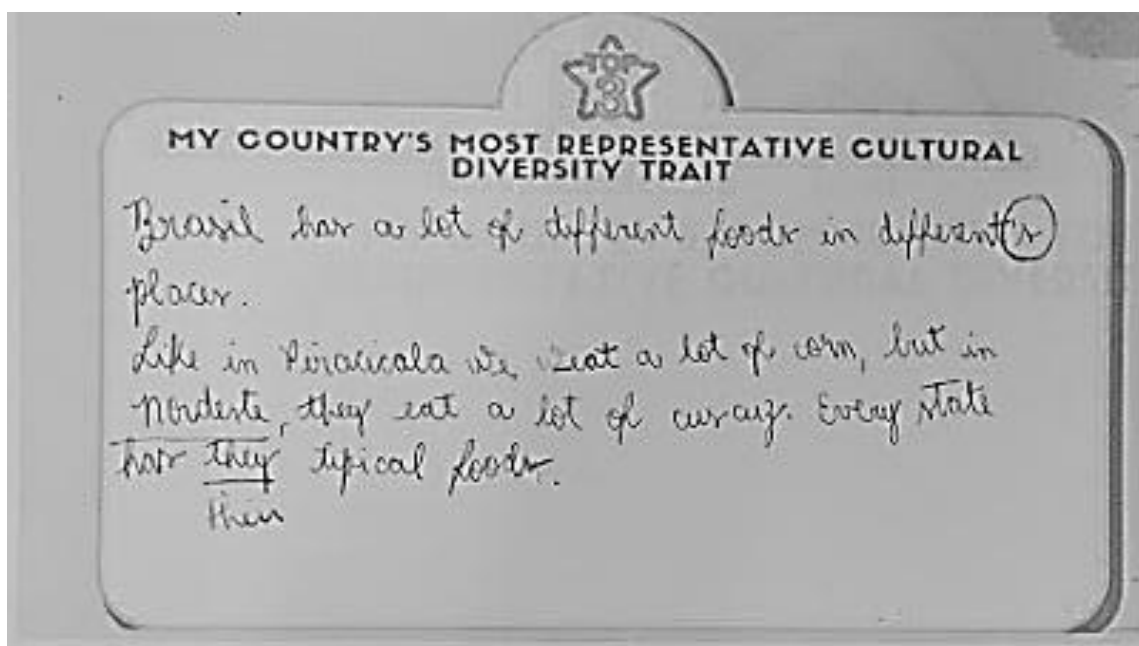 TOP
3
MY COUNTRY'S MOST REPRESENTATIVE CULTURAL
DIVERSITY TRAIT
Brasil has a lot of different foods in different's
places.
Like in Piracicaba we eat a lot of corn, but in
nordeste, they eat a lot of cuscuz. Every state
has they tipical foods.
their